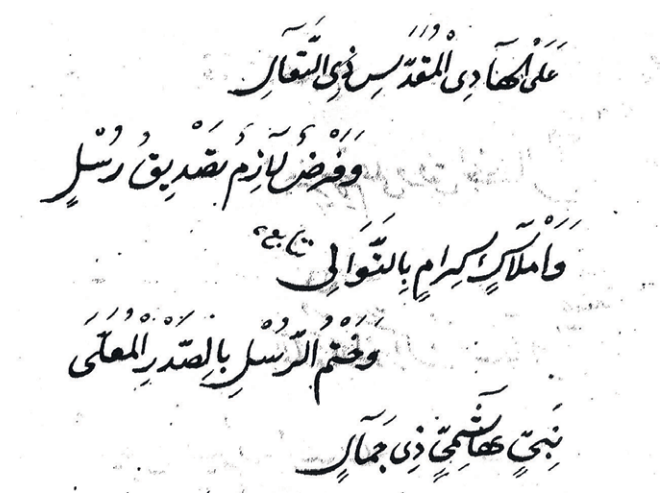 عَلَى الْهَادِى الْمُقَدَّسِ ذِى التَّعَالِ
وَفَرْضٌ لَازِمٌ تَصْدِيقُ رُسُلٍ
وَاَمْلَاكٍ كِرَامٍ بِالتَّوَالِى
وَخَتْمُ الرُّسْلِ بِالصَّدْرِ الْمُعَلَّى
نَبِىٍّ هَاشِمِىٍّ ذِى جَمَالٍ